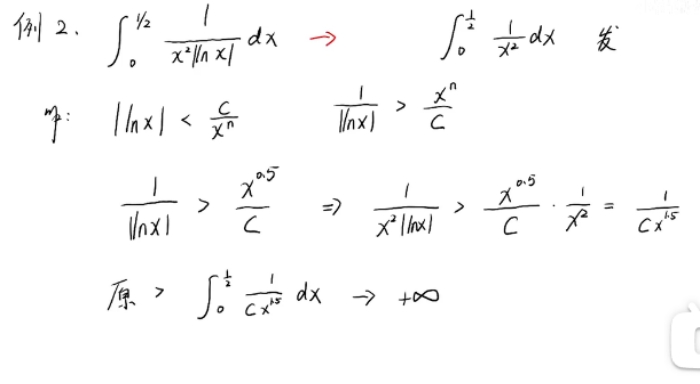 例 2. ∫₀^{1/2} 1/(x²|ln x|) dx → ∫₀^{1/2} 1/x² dx 发
|ln x| < C/xⁿ 1/|ln x| > xⁿ/C
1/|ln x| > x^{0.5}/C ⇒ 1/(x²|ln x|) > x^{0.5}/C · 1/x² = 1/(C x^{1.5})
原 > ∫₀^{1/2} 1/(C x^{1.5}) dx → +∞